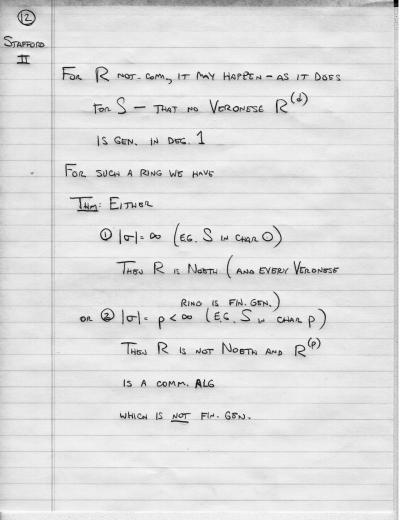 12
STAFFORD
II
FOR R NOT-COM, IT MAY HAPPEN - AS IT DOES
FOR S - THAT NO VERONESE R^(d)
IS GEN. IN DEG. 1
FOR SUCH A RING WE HAVE
THM: EITHER
① |σ| = ∞ (EG. S IN CHAR 0)
THEN R IS NOETH (AND EVERY VERONESE
RING IS FIN. GEN.)
OR ② |σ| = p < ∞ (E.G. S IN CHAR p)
THEN R IS NOT NOETH AND R^(p)
IS A COMM. ALG
WHICH IS NOT FIN. GEN.